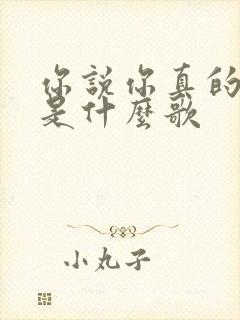 你說你真的
是什麼歌
小丸子